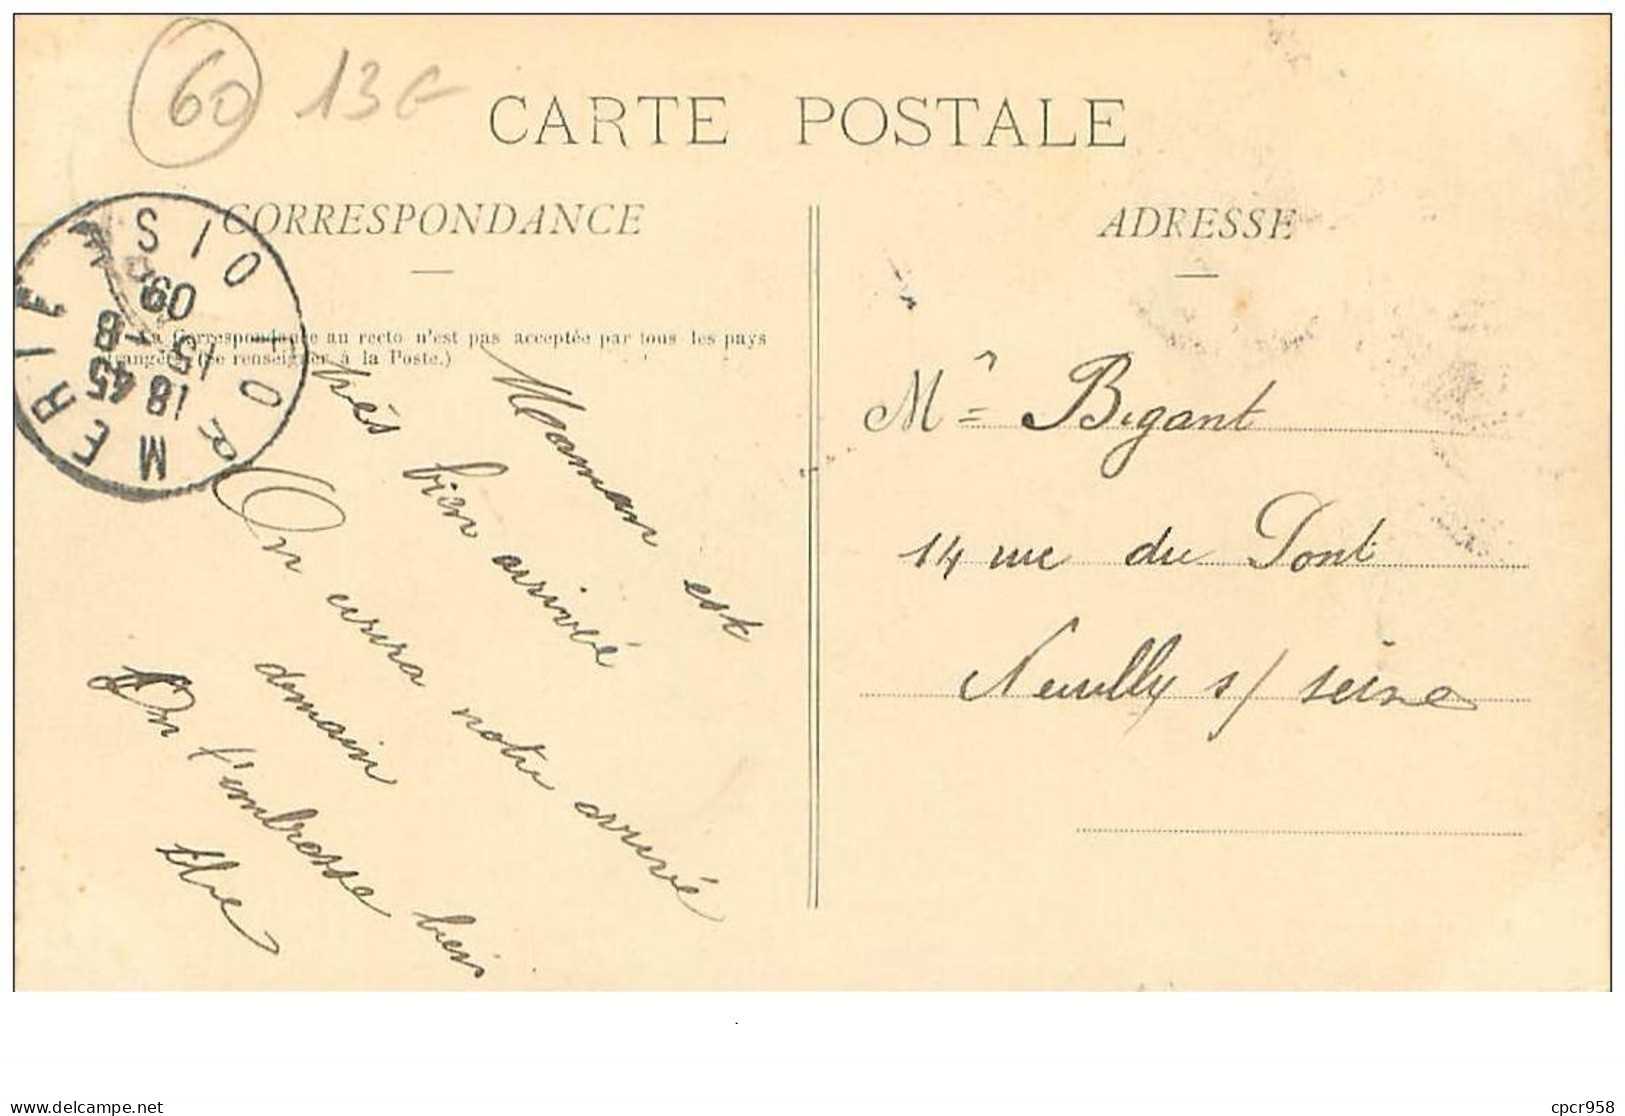 60 13 €
CARTE POSTALE
CORRESPONDANCE
ADRESSE
La Correspondance au recto n'est pas acceptée par tous les pays
étrangers (Se renseigner à la Poste.)
MERU
OISE
18 45
15 - 8
09
Maman est
très bien arrivée
On aura notre arrivé
demain
On t'embrasse bien
Mr Bigant
14 rue du Pont
Neuilly s/ seine
cpcr958